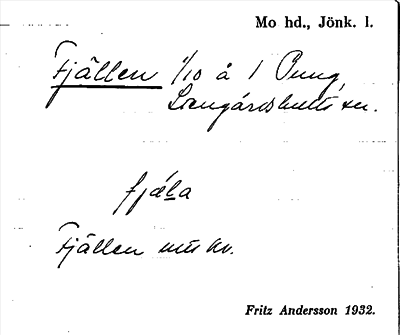 Mo hd., Jönk. l.
Fjällen 1/10 å 1 Pung,
Längårdshults sn.
fjæ̀la
Fjällen
Fritz Andersson 1932.